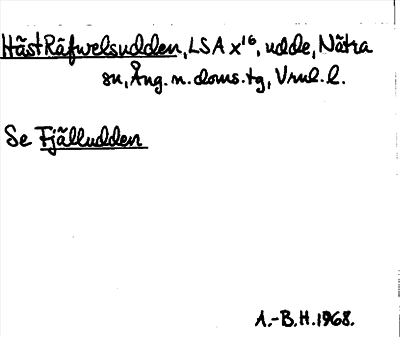 Häst Räfwelsudden, LSA X¹⁶, udde, Nätra
sn, Ång. n. doms. tg, Vrml. l.
Se Fjälludden
A.-B.H. 1968.